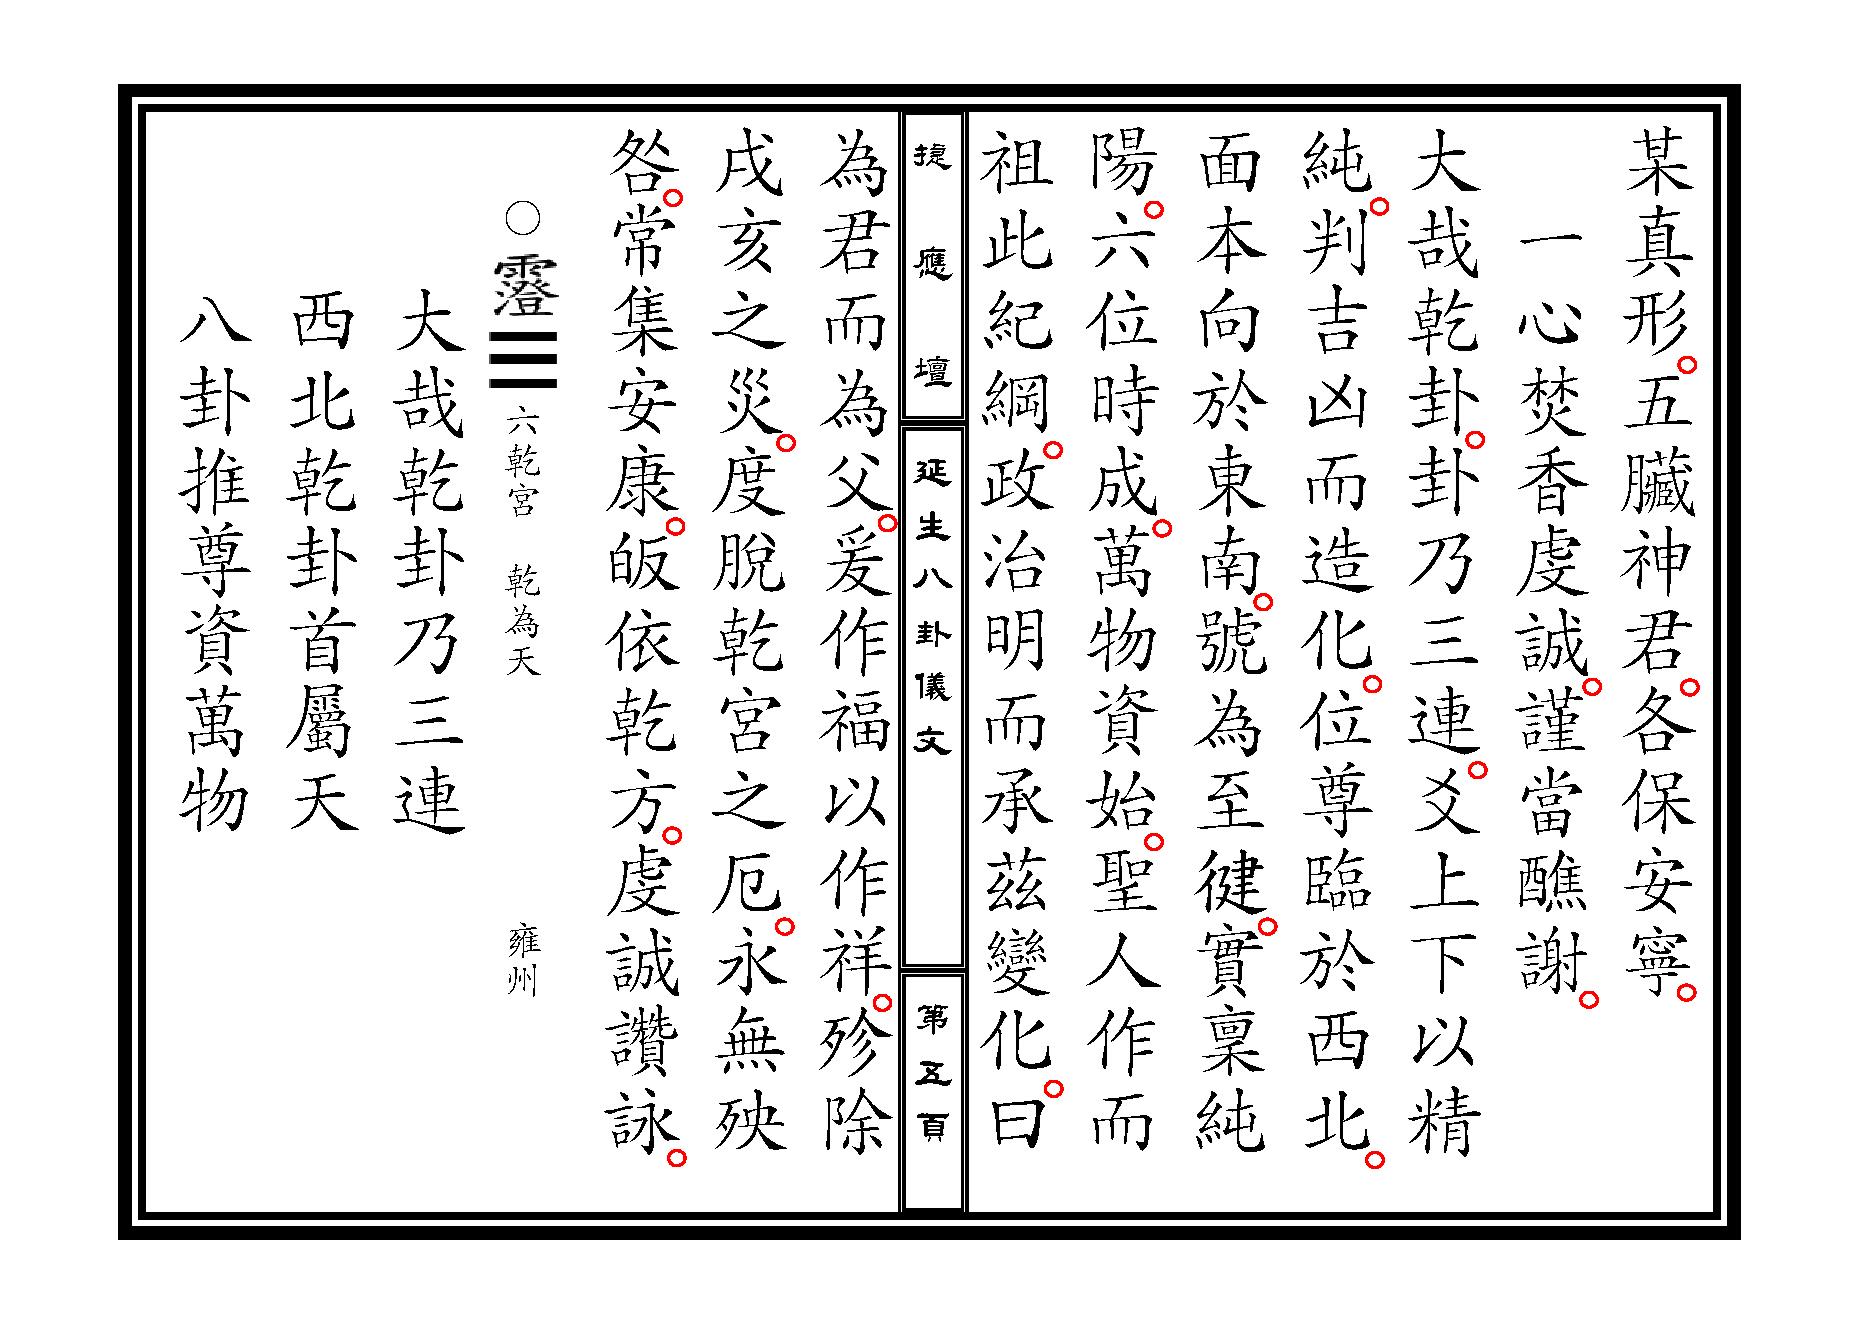 某真形。五臟神君。各保安寧。
一心焚香虔誠。謹當醮謝。
大哉乾卦。卦乃三連。爻上下以精
純。判吉凶而造化。位尊臨於西北。
面本向於東南。號為至健。實稟純
陽。六位時成。萬物資始。聖人作而
祖此紀綱。政治明而承茲變化。曰
捷應壇
延生八卦儀文
第五頁
為君而為父。爰作福以作祥。殄除
戌亥之災。度脫乾宮之厄。永無殃
咎。常集安康。皈依乾方。虔誠讚詠。
○䨵☰六乾宮 乾為天 雍州
大哉乾卦乃三連
西北乾卦首屬天
八卦推尊資萬物